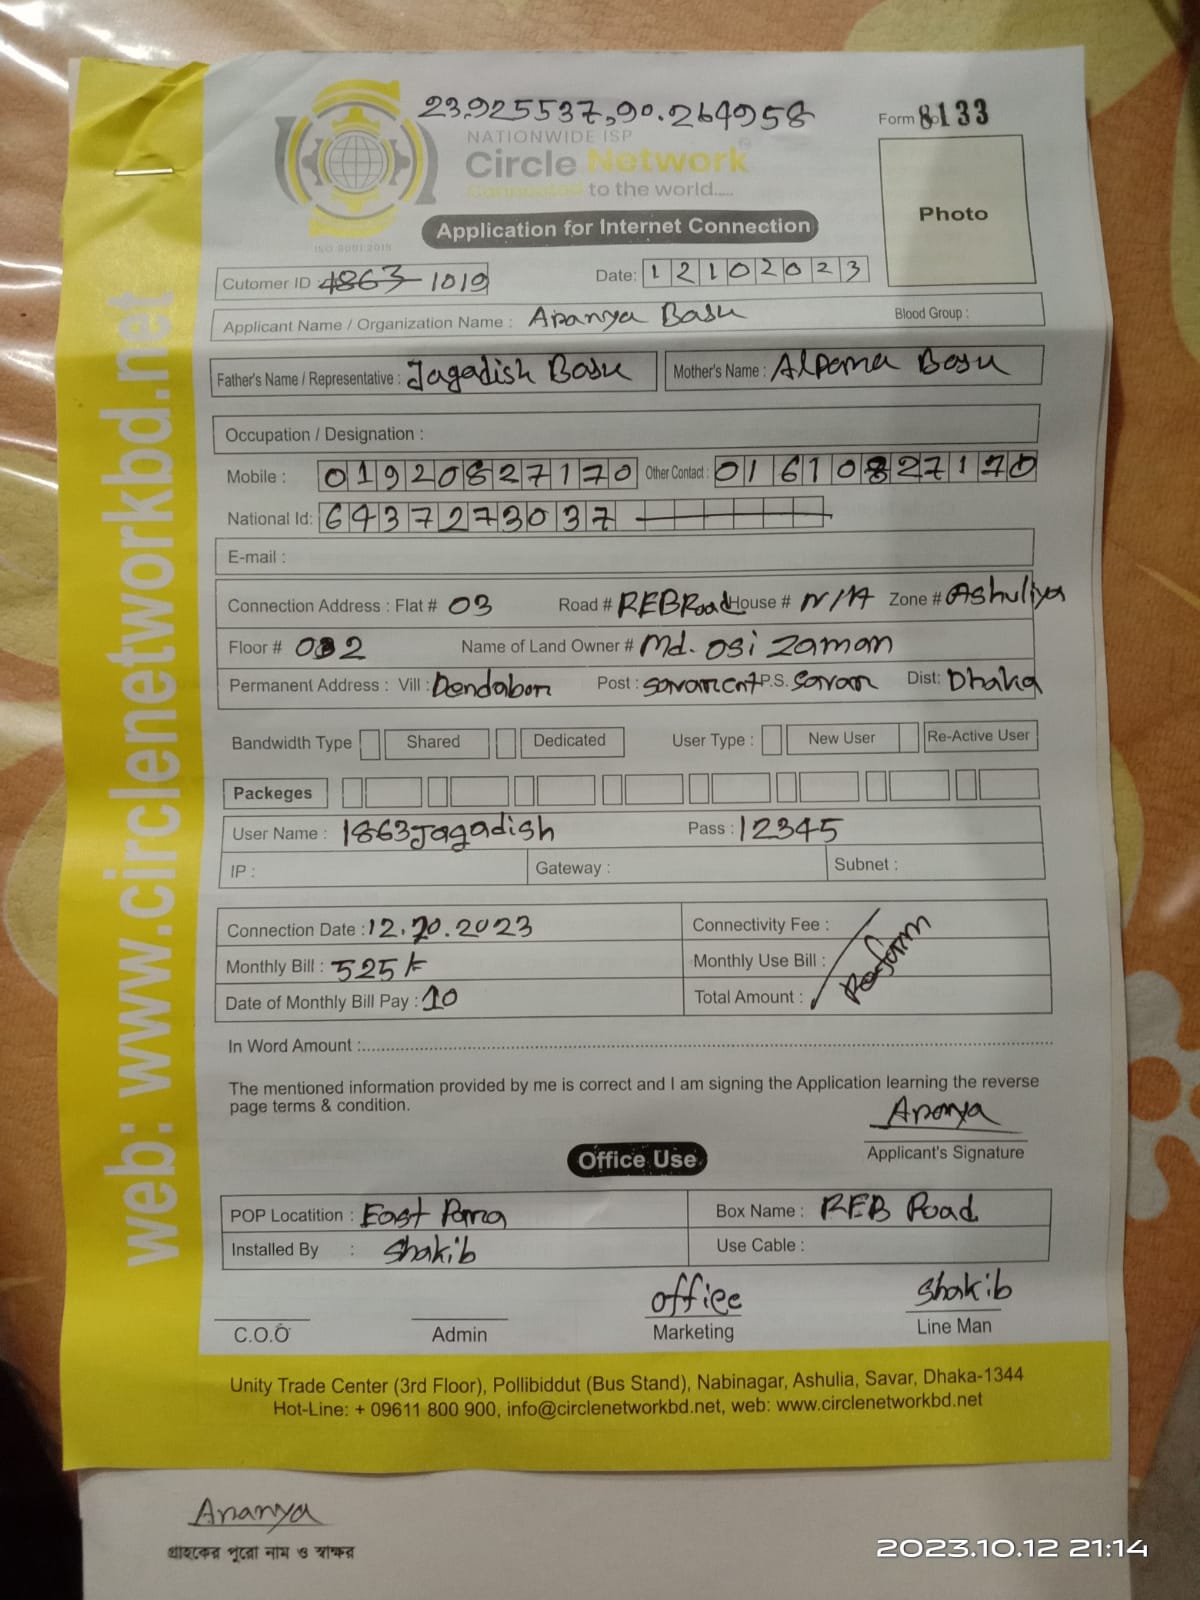 23.925537,90.264958
Form 8133
NATIONWIDE ISP
Circle Network
Connected to the world.....
ISO 9001:2015
Photo
Application for Internet Connection
Cutomer ID : 1863 1019
Date: 12102023
Applicant Name / Organization Name : Ananya Basu
Blood Group :
Father's Name / Representative : Jagadish Basu
Mother's Name : Alpona Basu
Occupation / Designation :
Mobile : 01920827170 Other Contact : 01610827170
National Id: 6437273037
E-mail :
Connection Address : Flat # 03 Road # REB Road House # N/A Zone # Ashuliya
Floor # 02 Name of Land Owner # Md. Osi Zaman
Permanent Address : Vill : Dendabor Post : Savarcnt P.S. Savar Dist: Dhaka
Bandwidth Type Shared Dedicated User Type : New User Re-Active User
Packeges
User Name : 1863Jagadish Pass : 12345
IP : Gateway : Subnet :
Connection Date : 12.10.2023 Connectivity Fee :
Monthly Bill : 525 Monthly Use Bill :
Date of Monthly Bill Pay : 10 Total Amount :
In Word Amount :
The mentioned information provided by me is correct and I am signing the Application learning the reverse
page terms & condition.
Ananya
Applicant's Signature
Office Use
POP Locatition : East Box Name : REB Road
Installed By : Shakib Use Cable :
office Shakib
C.O.O Admin Marketing Line Man
Unity Trade Center (3rd Floor), Pollibiddut (Bus Stand), Nabinagar, Ashulia, Savar, Dhaka-1344
Hot-Line: + 09611 800 900, info@circlenetworkbd.net, web: www.circlenetworkbd.net
web: www.circlenetworkbd.net
Ananya
গ্রাহকের পুরো নাম ও স্বাক্ষর
2023.10.12 21:14